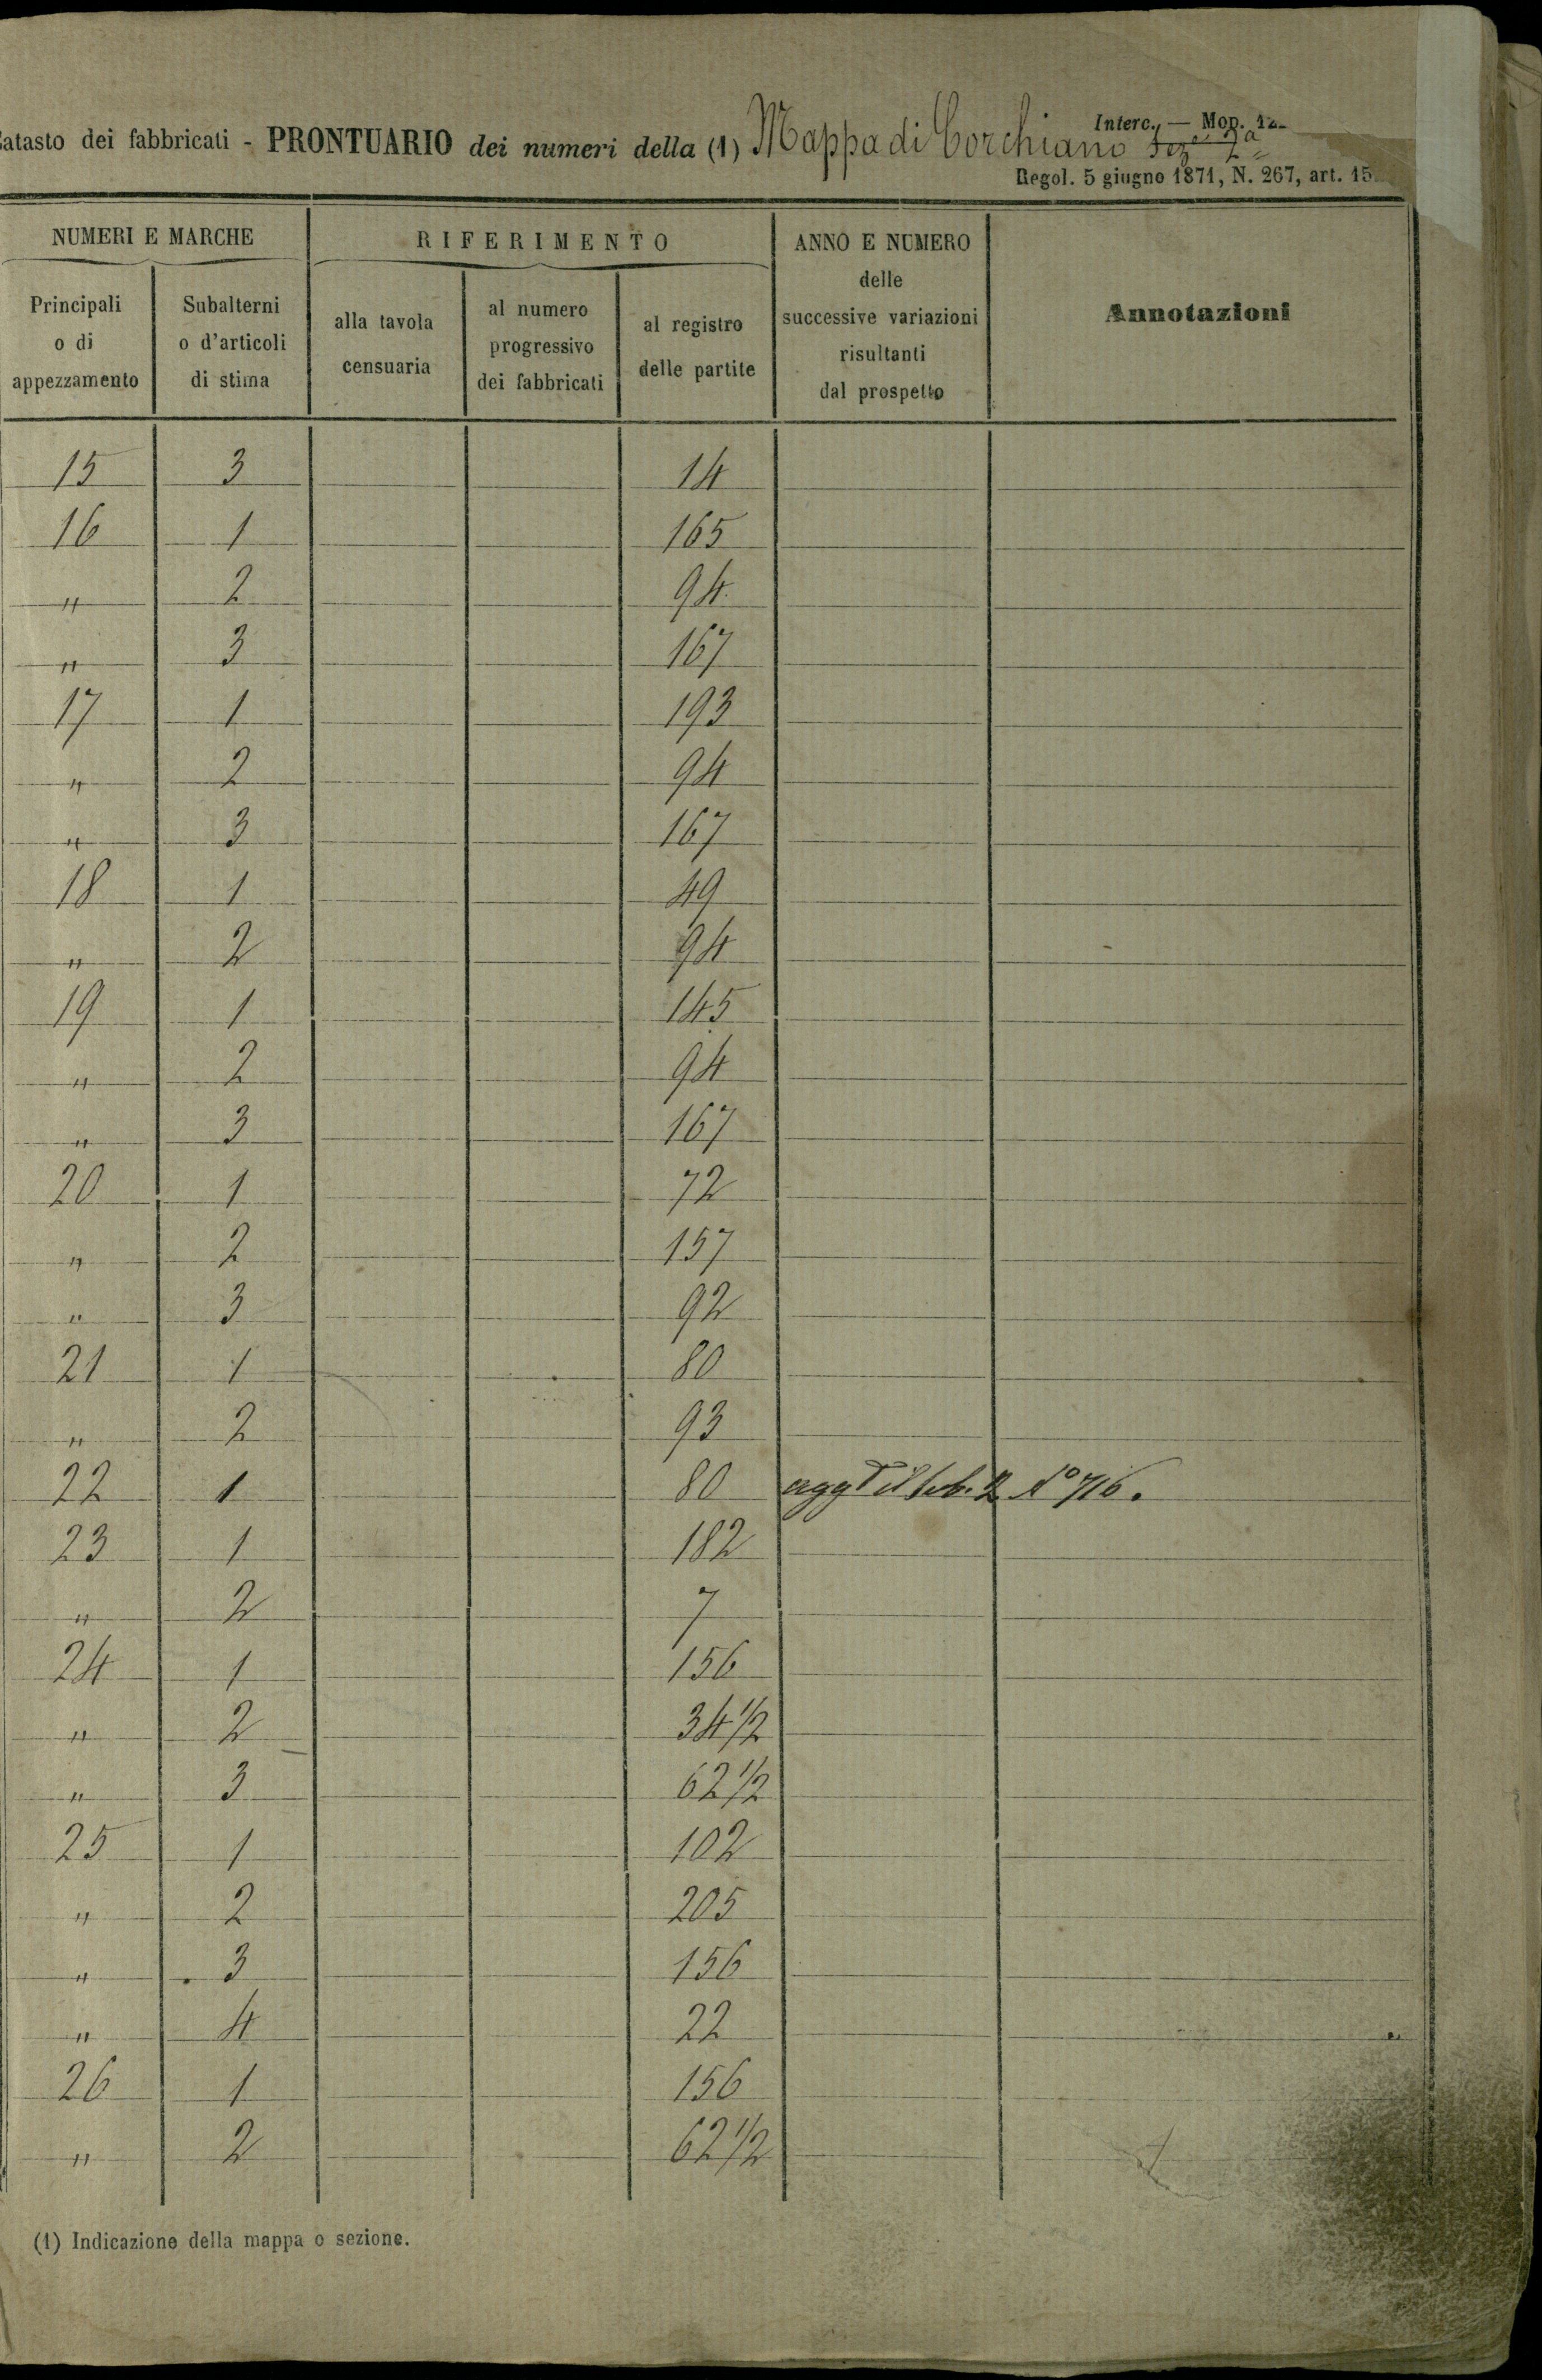 Catasto dei fabbricati - PRONTUARIO dei numeri della (1) Mappa di Corchiano Sez.e 2a
Interc. — Mod. 12
Regol. 5 giugno 1871, N. 267, art. 15
NUMERI E MARCHE
RIFERIMENTO
ANNO E NUMERO delle successive variazioni risultanti dal prospetto
Annotazioni
Principali o di appezzamento
Subalterni o d'articoli di stima
alla tavola censuaria
al numero progressivo dei fabbricati
al registro delle partite
15 3 14
16 1 165
" 2 94
" 3 167
17 1 193
" 2 94
" 3 167
18 1 49
" 2 94
19 1 145
" 2 94
" 3 167
20 1 72
" 2 157
" 3 92
21 1 80
" 2 93
22 1 80 aggt il sub. 2 No 716.
23 1 182
" 2 7
24 1 156
" 2 34 1/2
" 3 62 1/2
25 1 102
" 2 205
" 3 156
" 4 22
26 1 156
" 2 62 1/2
(1) Indicazione della mappa o sezione.